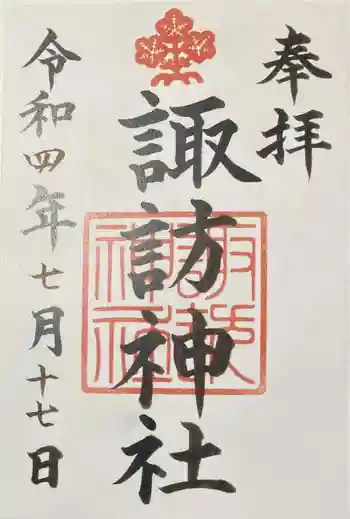 奉拝
諏訪神社
令和四年七月十七日